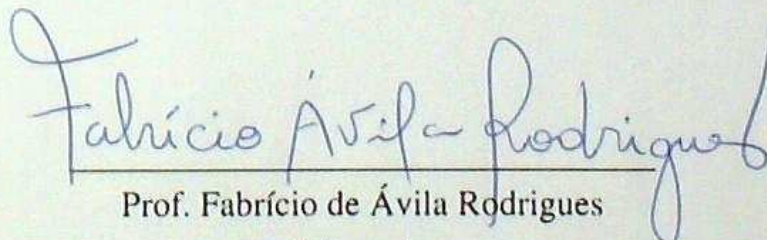 Fabrício Ávila Rodrigues
Prof. Fabrício de Ávila Rodrigues